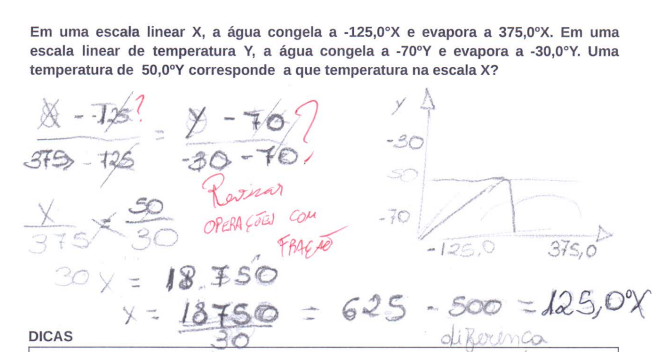 Em uma escala linear X, a água congela a -125,0ºX e evapora a 375,0ºX. Em uma
escala linear de temperatura Y, a água congela a -70ºY e evapora a -30,0ºY. Uma
temperatura de 50,0ºY corresponde a que temperatura na escala X?
X - -125 ? = Y - 70 ?
375 - 125 -30 - 70
X = 50
375 30
Revisar
OPERAÇÕES COM
FRAÇÃO
30 X = 18.750
X = 18750 = 625 - 500 = 125,0ºX
30 diferença
Y
-30
50
-70
-125,0 375,0
DICAS